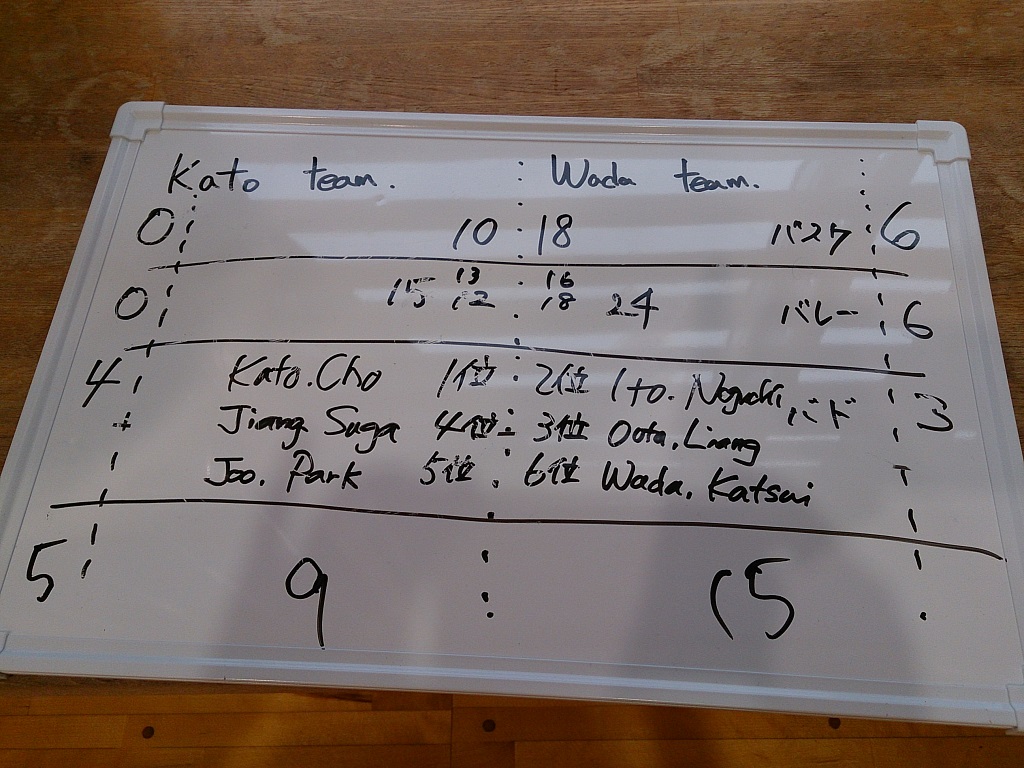 Kato team. Wada team.
0 10 18 バスケ 6
13 16
0 15 12 18 24 バレー 6
4 Kato.Cho 1位 2位 Ito.Noguchi バド 3
Jiang Suga 4位 3位 Oota.Liang
Joo. Park 5位 6位 Wada. Katsui
5 9 15